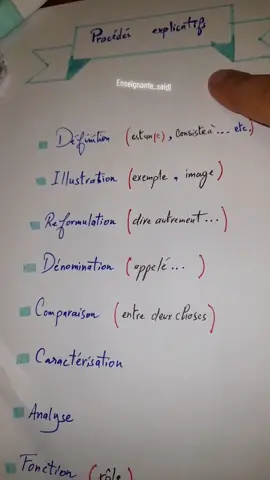 Procédés explicatifs
Enseignante_saidi
Définition (est un(e), consiste à... etc.)
Illustration (exemple, image)
Reformulation (dire autrement...)
Dénomination (appelé...)
Comparaison (entre deux choses)
Caractérisation
Analyse
Fonction (rôle)